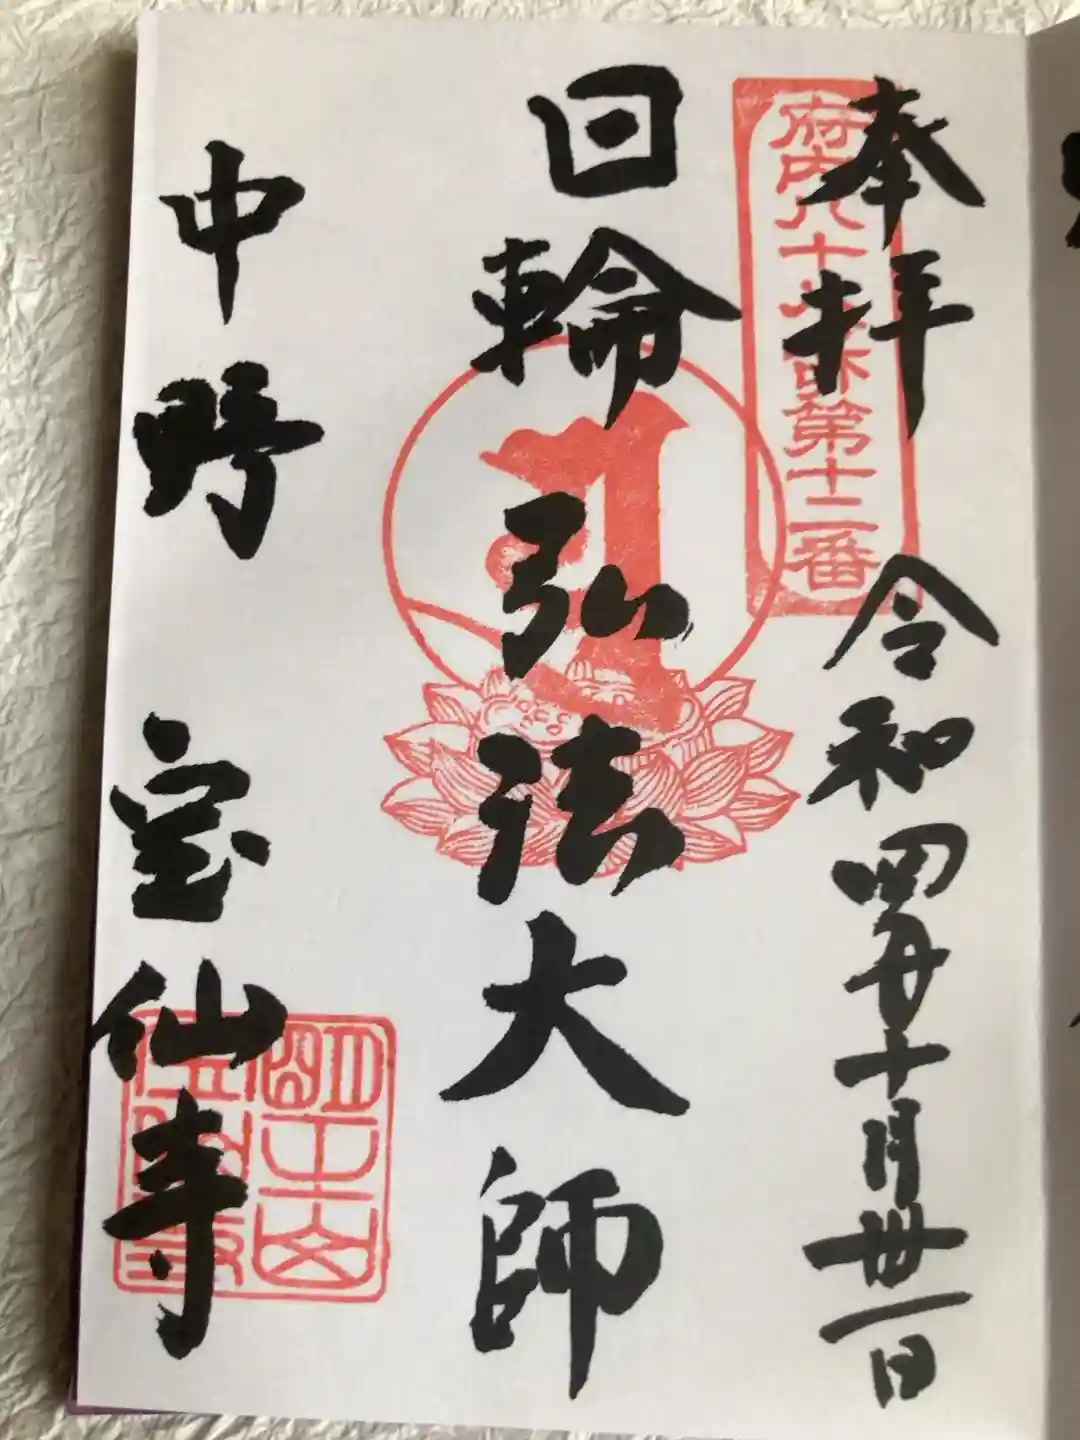 奉拝 令和四年十月卅一日
府内八十八ヶ所第十二番
日輪弘法大師
中野 宝仙寺
明王山